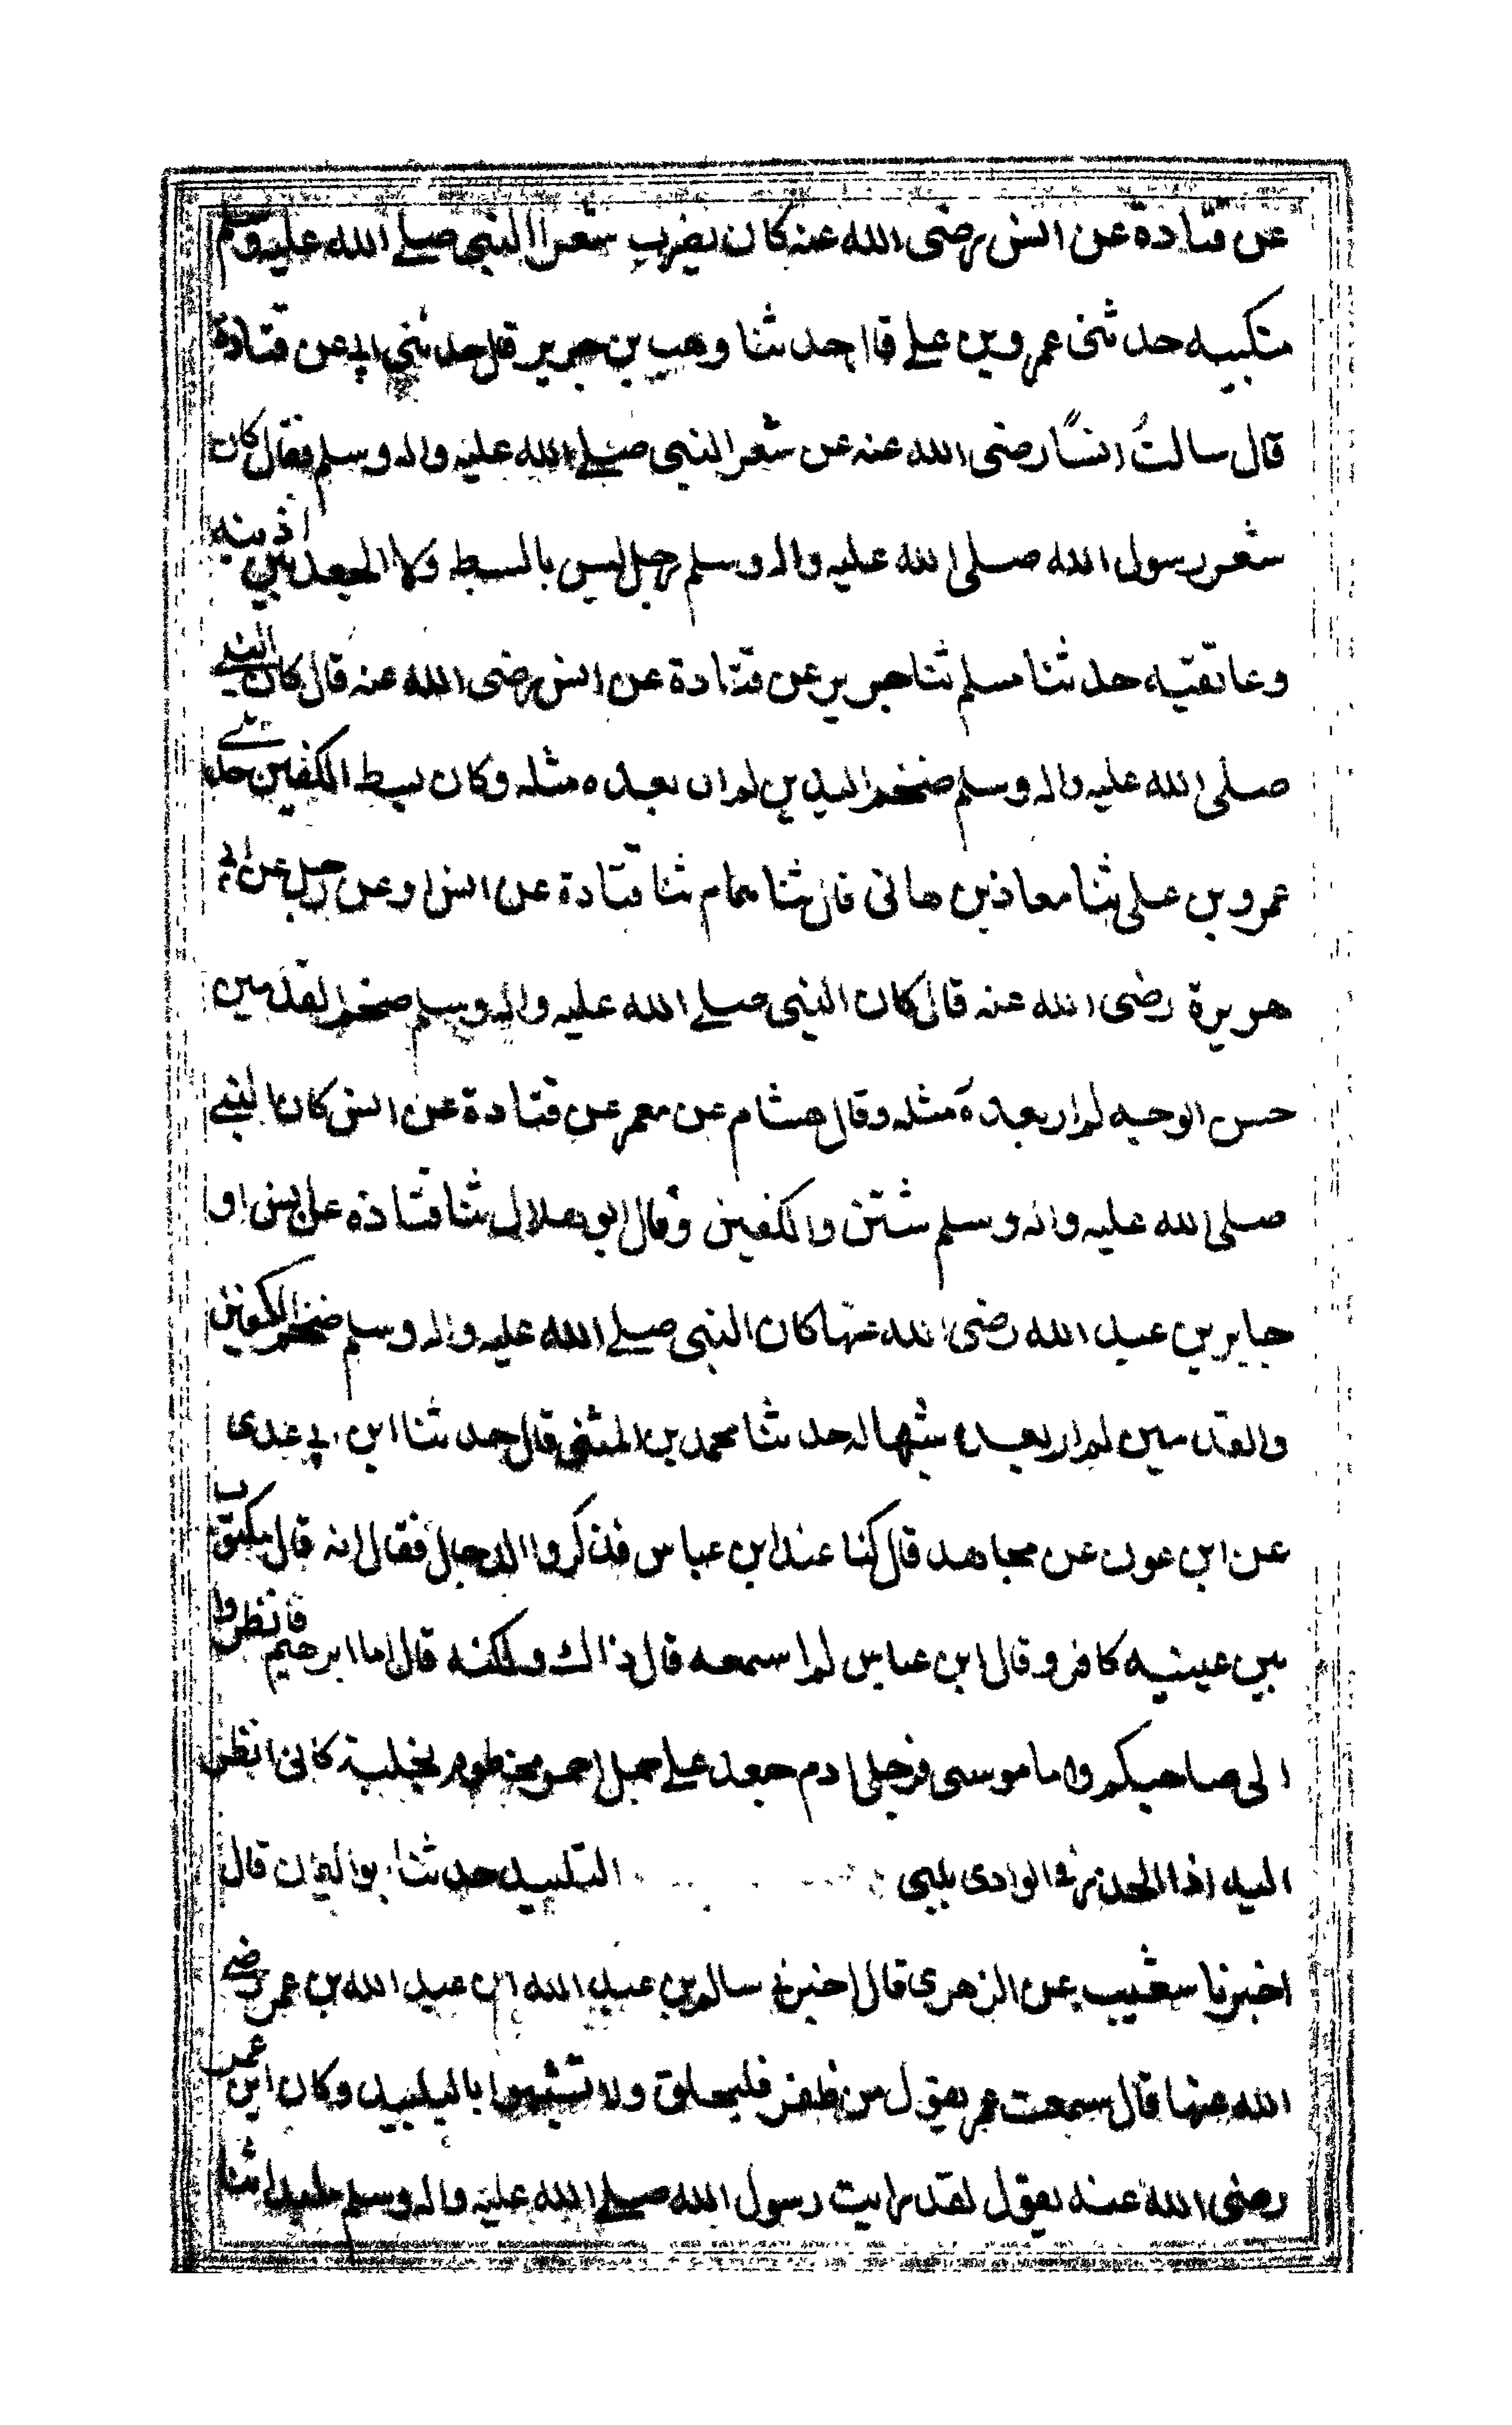 عن قتادة عن انس رضى الله عنه كان يضرب شعرا النبى صلے الله عليه وسلم
منكبيه حدثنى عمرو بن علے قال حدثنا وهب بن جرير قال حدثنى ابى عن قتادة
قال سالتُ انسًا رضى الله عنه عن شعر النبى صلے الله عليه واله وسلم فقال كان
شعر رسول الله صلى الله عليه واله وسلم رجل ليس بالسبط ولا الجعد بين اذينه
وعاتقيه حدثنا مسلم ثنا جرير عن قتادة عن انس رضى الله عنه قال كان النبے
صلى الله عليه واله وسلم ضخم اليدين لم ار بعده مثله وكان بسط الكفين حدثنے
عمرو بن على ثنا معاذ بن هانى قال ثنا همام ثنا قتادة عن انس او عن رجل عن ابى
هريرة رضى الله عنه قال كان النبى صلے الله عليه واله وسلم ضخم القدمين
حسن الوجه لم ار بعده مثله وقال هشام عن معمر عن قتادة عن انس كان النبے
صلى الله عليه واله وسلم شتن والكفين وقال ابو هلال ثنا قتادة عن انس او
جابر بن عبد الله رضى الله عنها كان النبى صلے الله عليه واله وسلم ضخم الكفين
والقدمين لم ار بعده شبها له حدثنا محمد بن المثنى قال حدثنا ابن ابى عدى
عن ابن عون عن مجاهد قال كنا عند ابن عباس فذكروا الدجال فقال انه قال مكتوب
بين عينيه كافر وقال ابن عباس لم اسمعه قال ذالك ولكنه قال اما ابرهيم فانظروا
الى صاحبكم واما موسى فرجل ادم جعد علے جمل احمر مخطوم بخلبة كانى انظر
اليه اذا انحدر فى الوادى يلبى التلبيد حدثنا ابو اليمان قال
اخبرنا شعيب عن الزهرى قال اخبرنى سالم بن عبد الله ان عبد الله بن عمر رضے
الله عنها قال سمعت عمر يقول من ظفر فليحلق ولا تشبهوا بالتلبيد وكان ابن عمر
رضى الله عنه يقول لقد رايت رسول الله صلے الله عليه واله وسلم ملبدا ثنا